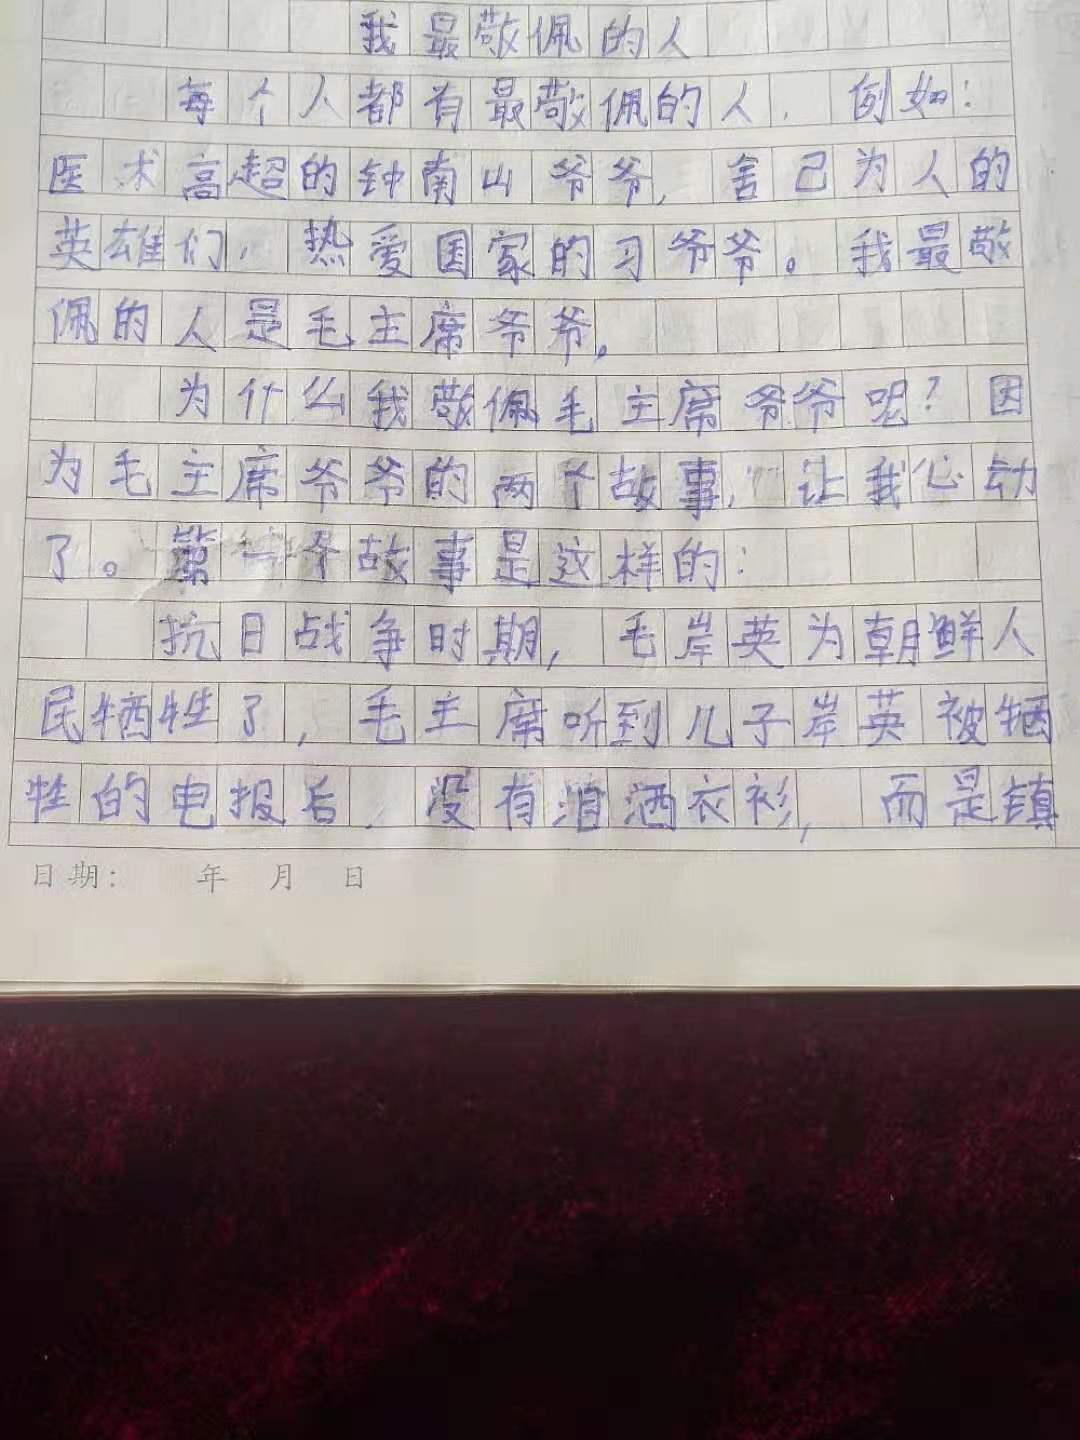 我最敬佩的人
每个人都有最敬佩的人,例如:
医术高超的钟南山爷爷,舍己为人的
英雄们,热爱国家的习爷爷。我最敬
佩的人是毛主席爷爷。
为什么我敬佩毛主席爷爷呢?因
为毛主席爷爷的两个故事,让我心动
了。第一个故事是这样的:
抗日战争时期,毛岸英为朝鲜人
民牺牲了,毛主席听到儿子岸英被牺
牲的电报后,没有泪洒衣衫,而是镇
日期: 年 月 日